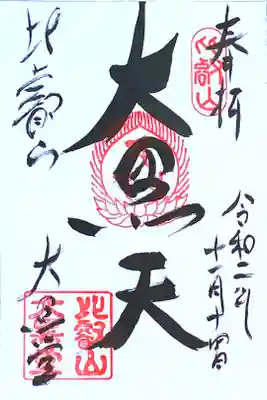 奉拝
比叡山
令和二年
十一月十四日
大黒天
比叡山
大黒堂
比叡山